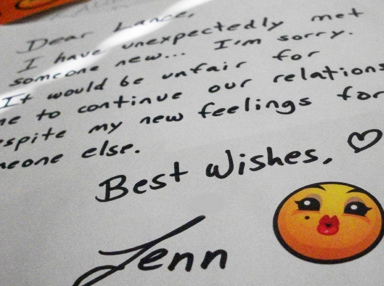 Dear Lance,
I have unexpectedly met
someone new... I'm sorry.
It would be unfair for
me to continue our relations
spite my new feelings for
meone else.
Best Wishes,
Jenn